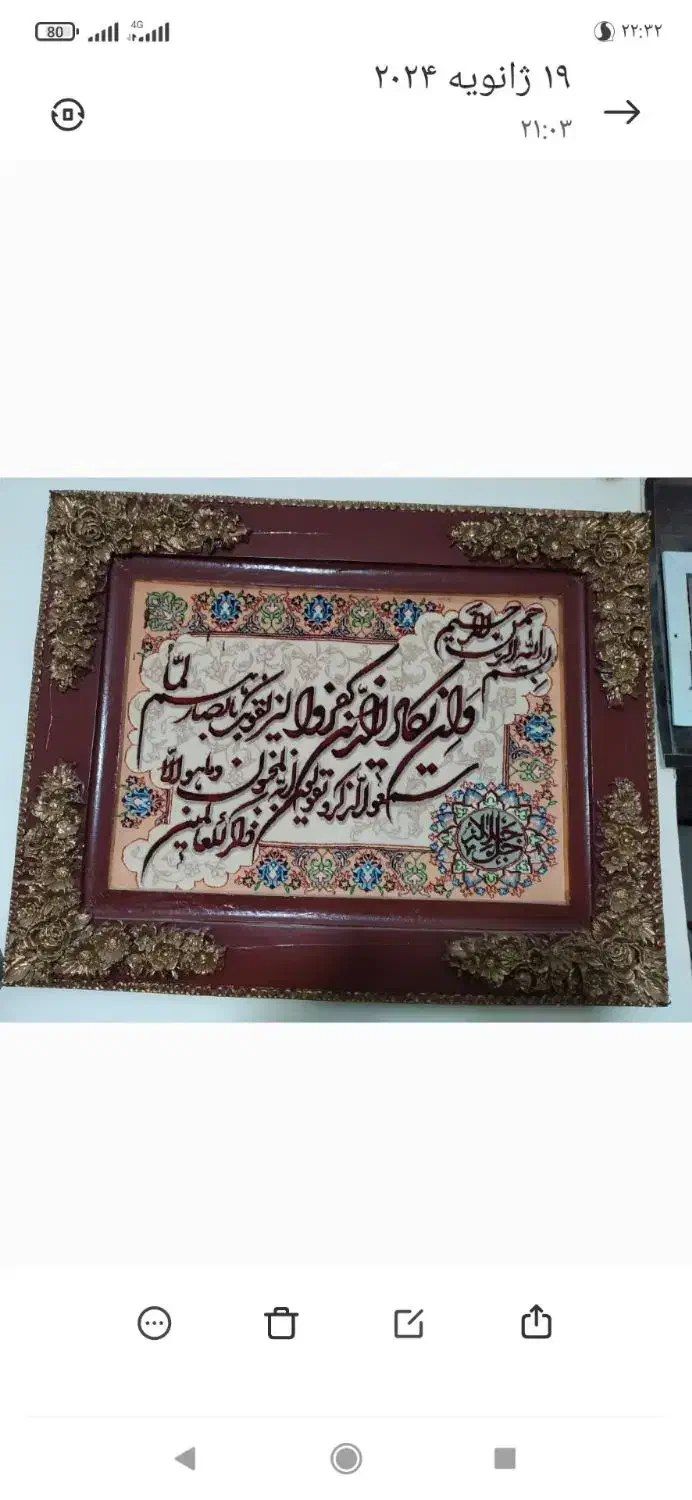 80
4G
۲۲:۳۲
۱۹ ژانویه ۲۰۲۴
۲۱:۰۳
بسم الله الرحمن الرحیم
وان یکاد الذین کفروا لیزلقونک بابصارهم لما
سمعوا الذکر و یقولون انه لمجنون وما هو الا
ذکر للعالمین
جل جلاله